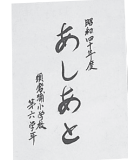 昭和四十年度
あしあと
須磨浦小学校
第六学年